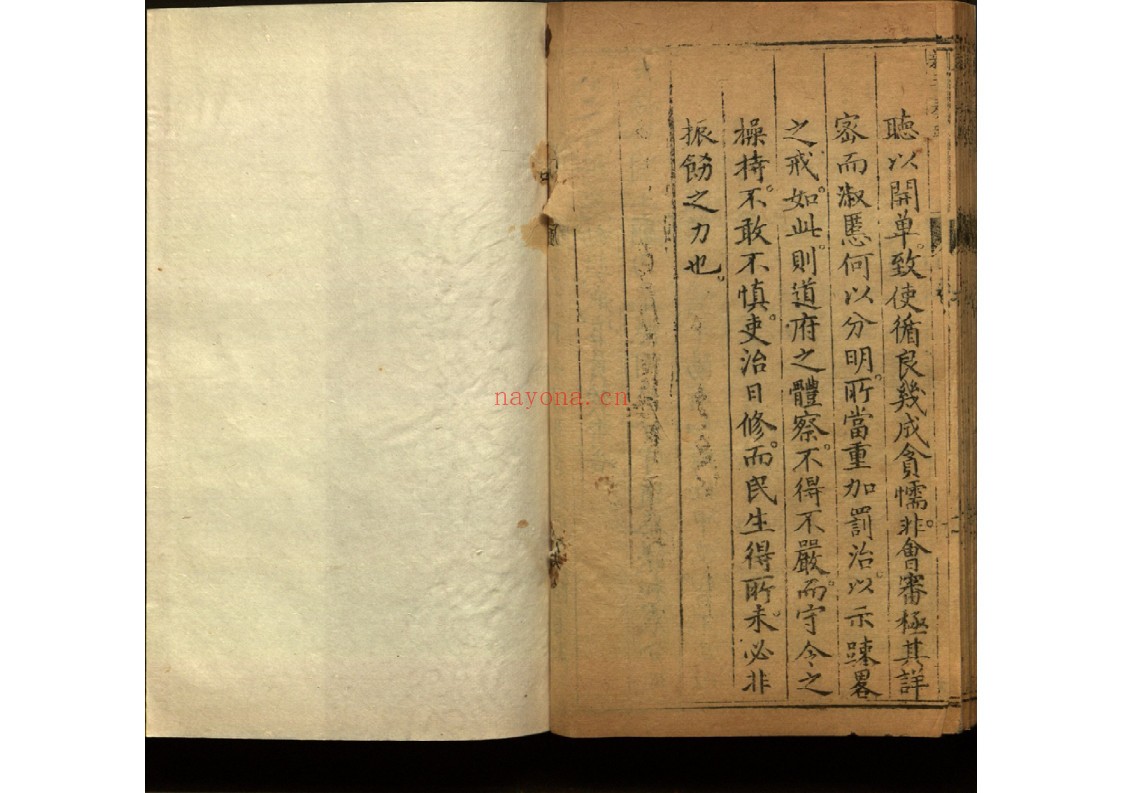 聴以開单。致使循良幾成貪懦。非會審極其詳
宻而淑慝何以分明。所當重加罰治。以示踈畧
之戒。如此。則道府之體察。不得不嚴。而守令之
操持。不敢不慎。吏治日修。而民生得所。未必非
振飭之力也。
nayona.cn